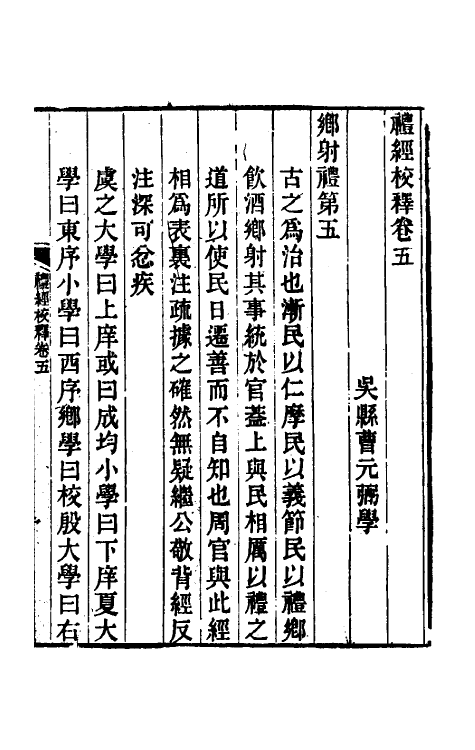 禮經校釋卷五
吳縣曹元弼學
鄉射禮第五
古之爲治也漸民以仁摩民以義節民以禮鄉
飲酒鄉射其事統於官蓋上與民相厲以禮之
道所以使民日遷善而不自知也周官與此經
相爲表裏注疏據之確然無疑繼公敬背經反
注深可忿疾
虞之大學曰上庠或曰成均小學曰下庠夏大
學曰東序小學曰西序鄉學曰校殷大學曰右
禮經校釋卷五